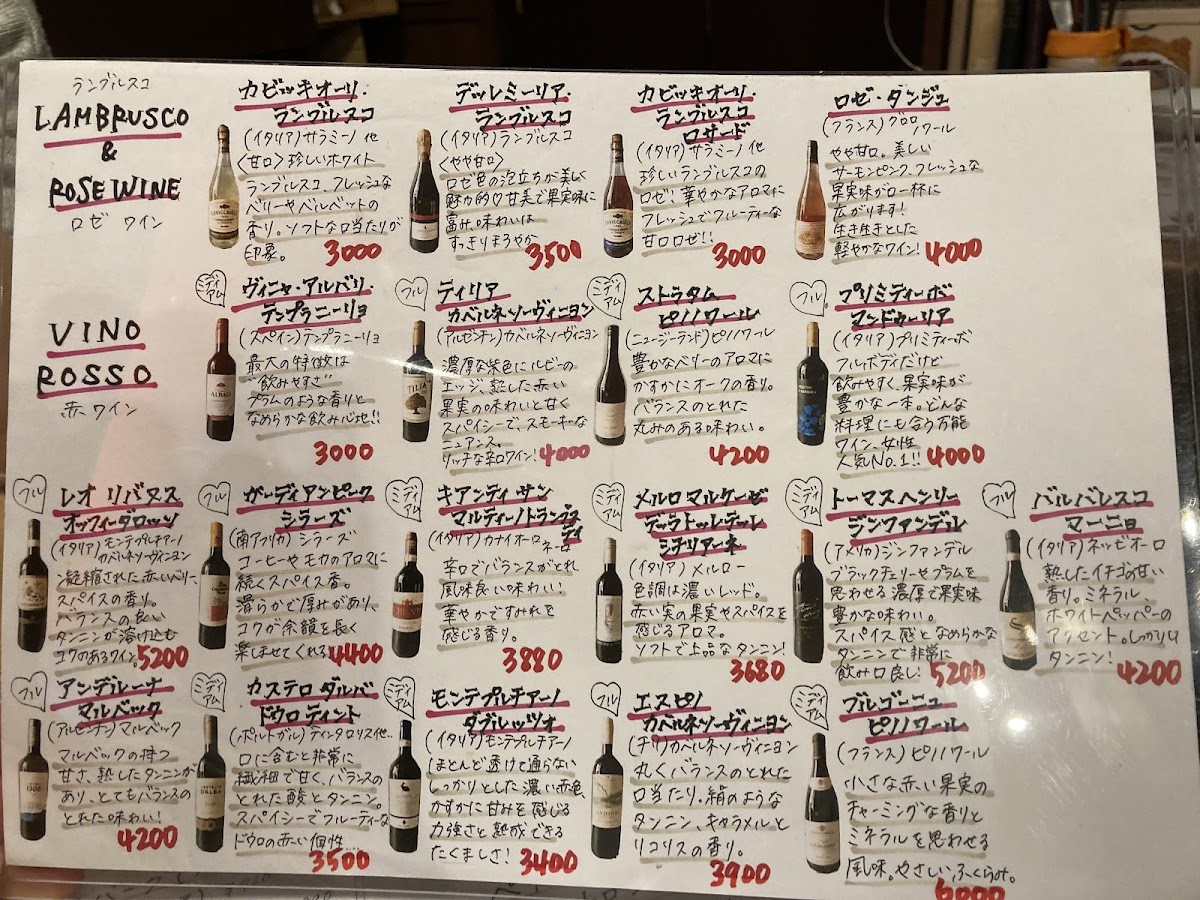 ランブルスコ
LAMBRUSCO
&
ROSE WINE
ロゼ ワイン
カビッキオーリ・
ランブルスコ
(イタリア)サラミーノ 他
〈甘口〉珍しいホワイト
ランブルスコ、フレッシュな
ベリーやベルベットの
香り。ソフトな口当たりが
印象。
3000
デッレミーリア・
ランブルスコ
(イタリア)ランブルスコ
〈やや甘口〉
ロゼ色の泡立ちが美しく
魅力的♡甘美で果実味に
富み、味わいは
すっきりまろやか
3500
カビッキオーリ・
ランブルスコ
ロサード
(イタリア)サラミーノ他
珍しいランブルスコの
ロゼ!華やかなアロマに
フレッシュでフルーティーな
甘口ロゼ!!
3000
ロゼ・ダンジュ
(フランス)グロロ
ノワール
やや甘口。美しい
サーモンピンク。フレッシュな
果実味が口一杯に
広がります!
生き生きとした
軽やかなワイン!
4000
VINO
ROSSO
赤ワイン
ミディアム
ヴィニャ・アルバリ・
テンプラニーリョ
(スペイン)テンプラニーリョ
最大の特徴は
"飲みやすさ"
プラムのような香りと
なめらかな飲み心地!!
3000
フル
ティリア
カベルネソーヴィニヨン
(アルゼンチン)カベルネソーヴィニヨン
濃厚な紫色にルビーの
エッジ、熟した赤い
果実の味わいと甘く
スパイシーで、スモーキーな
ニュアンス。
リッチな辛口ワイン!
4000
ミディアム
ストラタム
ピノノワール
(ニュージーランド)ピノノワール
豊かなベリーのアロマに
かすかにオークの香り。
バランスのとれた
丸みのある味わい。
4200
フル
プリミティーボ
マンドゥーリア
(イタリア)プリミティーボ
フルボディだけど
飲みやすく、果実味が
豊かな一本。どんな
料理にも合う万能
ワイン、女性
人気No.1!!
4000
フル
レオ リパヌス
オッフィーダロッソ
(イタリア)モンテプルチアーノ
カベルネソーヴィニヨン
凝縮された赤いベリー
スパイスの香り。
バランスの良い
タンニンが溶け込む
コクのあるワイン。
5200
フル
ガーディアンピーク
シラーズ
(南アフリカ)シラーズ
コーヒーやモカのアロマに
続くスパイス香。
滑らかで厚みがあり、
コクが余韻を長く
楽しませてくれる!
4400
ミディアム
キアンティ サン
マルティーノトランジェスティ
(イタリア)カナイオーロ
ネーロ
辛口でバランスがとれ
風味良い味わい!
華やかですみれを
感じる香り。
3880
ミディアム
メルロ マルケーゼ
デッラトゥレデレ
シチリアーネ
(イタリア)メルロー
色調は濃いレッド。
赤い実の果実やスパイスを
感じるアロマ。
ソフトで上品なタンニン!
3680
ミディアム
トーマスヘンリー
ジンファンデル
(アメリカ)ジンファンデル
ブラックチェリーやプラムを
思わせる濃厚で果実味
豊かな味わい。
スパイス感となめらかな
タンニンで非常に
飲み口良し!
5200
フル
バルバレスコ
マーニョ
(イタリア)ネッビオーロ
熟したイチゴの甘い
香り。ミネラル、
ホワイトペッパーの
アクセント。しっかりし
タンニン!
4200
フル
アンデルーナ
マルベック
(アルゼンチン)マルベック
マルベックの持つ
甘さ、熟したタンニンが
あり、とてもバランスの
とれた味わい!
4200
ミディアム
カステロ ダルバ
ドウロ ティント
(ポルトガル)ティンタロリス他..
口に含むと非常に
繊細で甘く、バランスの
とれた酸とタンニン。
スパイシーでフルーティーな
ドウロの赤い個性....
3500
ミディアム
モンテプルチアーノ
ダブルッツォ
(イタリア)モンテプルチアーノ
ほとんど透けて通らない
しっかりとした濃い赤色、
かすかに甘みを感じる
力強さと熟成できる
たくましさ!
3400
フル
エスピノ
カベルネソーヴィニヨン
(チリ)カベルネソーヴィニヨン
丸くバランスのとれた
口当たり。絹のような
タンニン、キャラメルと
リコリスの香り。
3900
ミディアム
ブルゴーニュ
ピノノワール
(フランス)ピノノワール
小さな赤い果実の
チャーミングな香りと
ミネラルを思わせる
風味。やさしい、ふくらみ。
6000